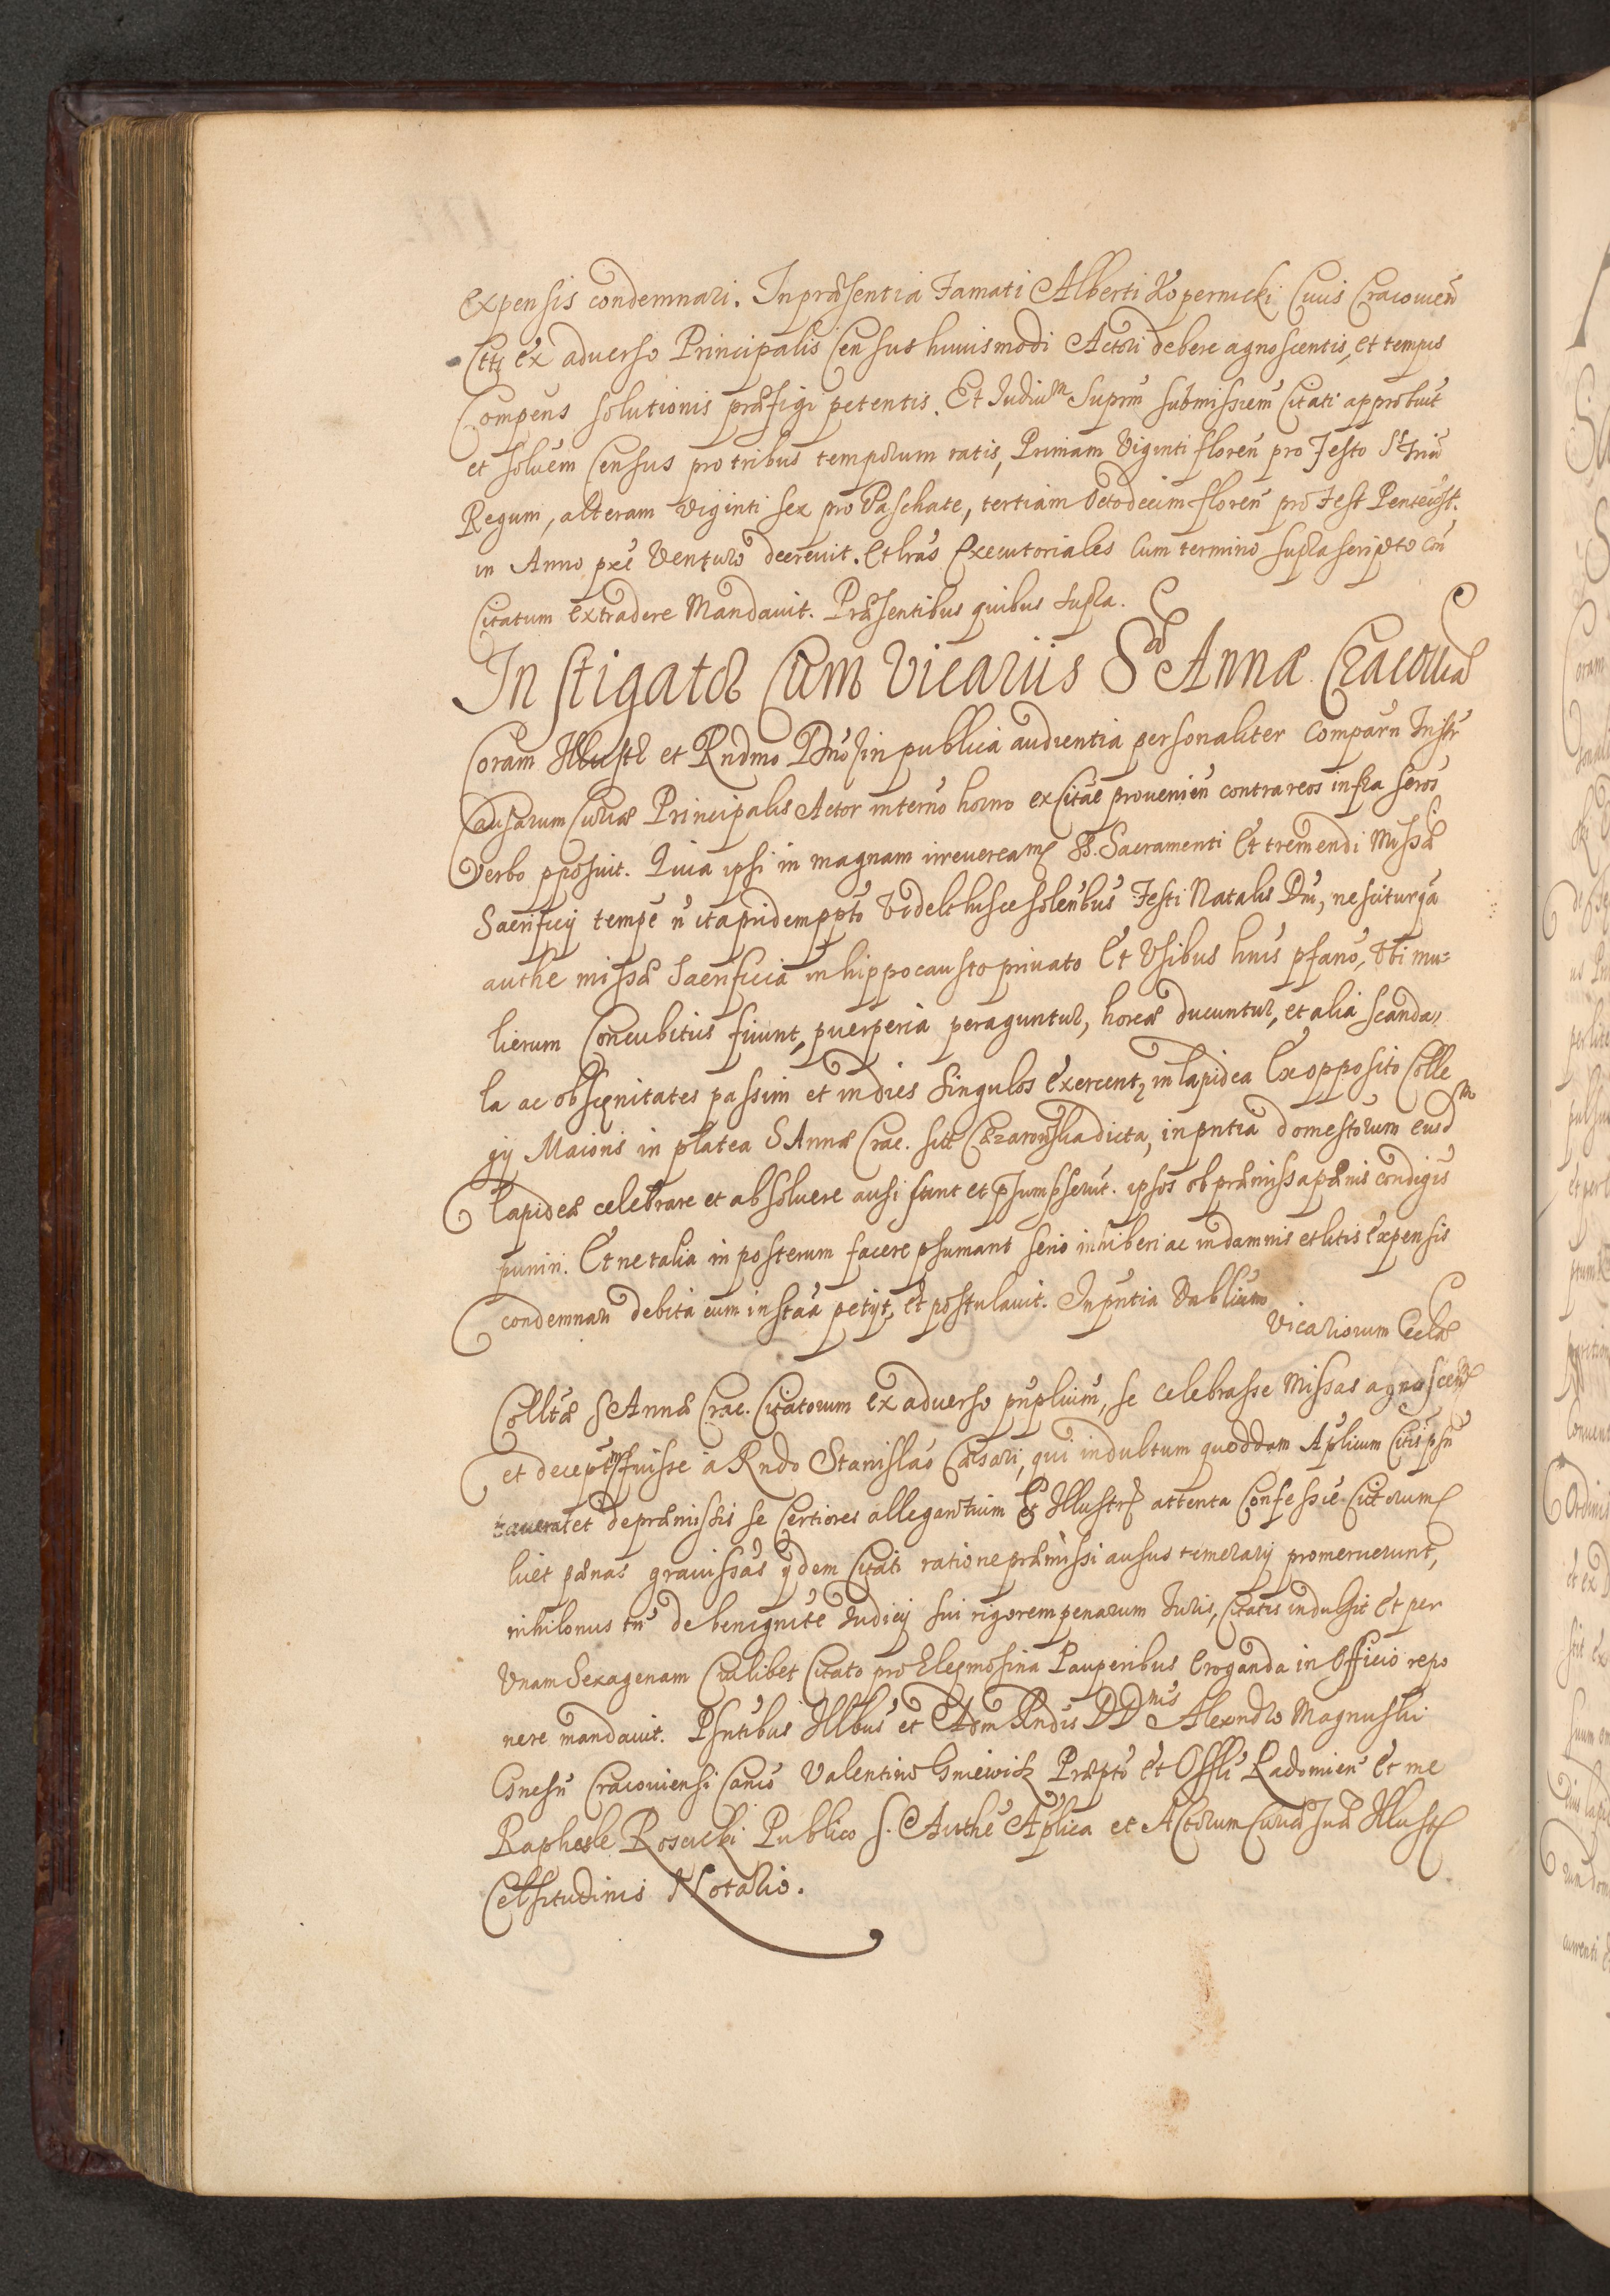 expensis condemnari. In præsentia Famati Alberti Kopernicki Civis Cracovien
Citti ex adverso Principalis Census huiusmodi Actori debere agnoscentis, et tempus
Compens solutionis præfigi petentis. Et Iudiu^m Suprm submissiem Citati approbuit
et soluem Census pro tribus temporum ratis, Primam Viginti floren pro Festo S^t Triu
Regum, alteram Viginti sex pro Paschate, tertiam Octodecim floren pro Fest Pentecost.
in Anno pxe Venturo decrevit. Et lras Executoriales Cum termino supra scripto Con
Citatum extradere Mandavit. Præsentibus quibus supra.
Instigator Cum Vicariis S^æ Annæ Cracoviæ
Coram Illustr et Rndmo Dno in publica audientia personaliter Comparn Instr
Causarum Curiæ Principalis Actor in termo horno ex Citae provenien contra reos infra scros
Verbo pposuit. Quia ipsi in magnam irreveream SS. Sacramenti Et tremendi Missæ
Sacrificij tempe n ita pridem ppto Videlt hisce solenbus Festi Natalis Dni, nescitur qua
authe missæ Sacrificia in hippocausto privato Et Usibus huis pfano, Ubi mu-
lierum Concubitus fiunt, puerperia peraguntur, horeæ ducuntur, et alia scanda-
la ac obscænitates passim et indies Singulos Exercent, in lapidea Ex opposito Colle
gij Maioris in platea S Annæ Crac. sitt Cezarowska dicta, in pntia domestorum eiusd^m
Lapideæ celebrare et absolvere ausi sunt et psumpserut. ipsos ob præmissa pænis condigis
puniri. Et ne talia in posterum facere psumant serio inhiberi ac in damnis et litis Expensis
condemnari debita cum instaa petijt, et postulavit. In pntia Vablium
Vicariorum Ecclæ
Colltæ S Annæ Crac. Citatorum Ex adverso pnplium, se celebrasse Missas agnoscen
et decept^m fuisse a Rndo Stanislao Cæsari, qui indultum quoddam Aplicum Citis psn
taverat et de præmissis se Certiores allegantium Et Illustr attenta Confessie Citorum
liret pænas gravissas ijdem Citati ratione præmissi ausus temerarij promeruerunt,
nihilonus tn de benignite Iudicij sui rigorem penarum Iuris, Citatis indulsit Et per
Unam Sexagenam Cuilibet Citato pro Elemosina Pauperibus Eroganda in Officio repo
nere mandavit. Psntibus Illbus et Adm Rndis DD^nis Alexndro Magnuski
Gnesn Cracoviensi Canco Valentino Gniewisz Præpto Et Offli Radomien Et me
Raphaele Rosciecki Publico S. Authe Aplica et Actorum Curiæ Suæ Illustr
Celsitudinis Notario.